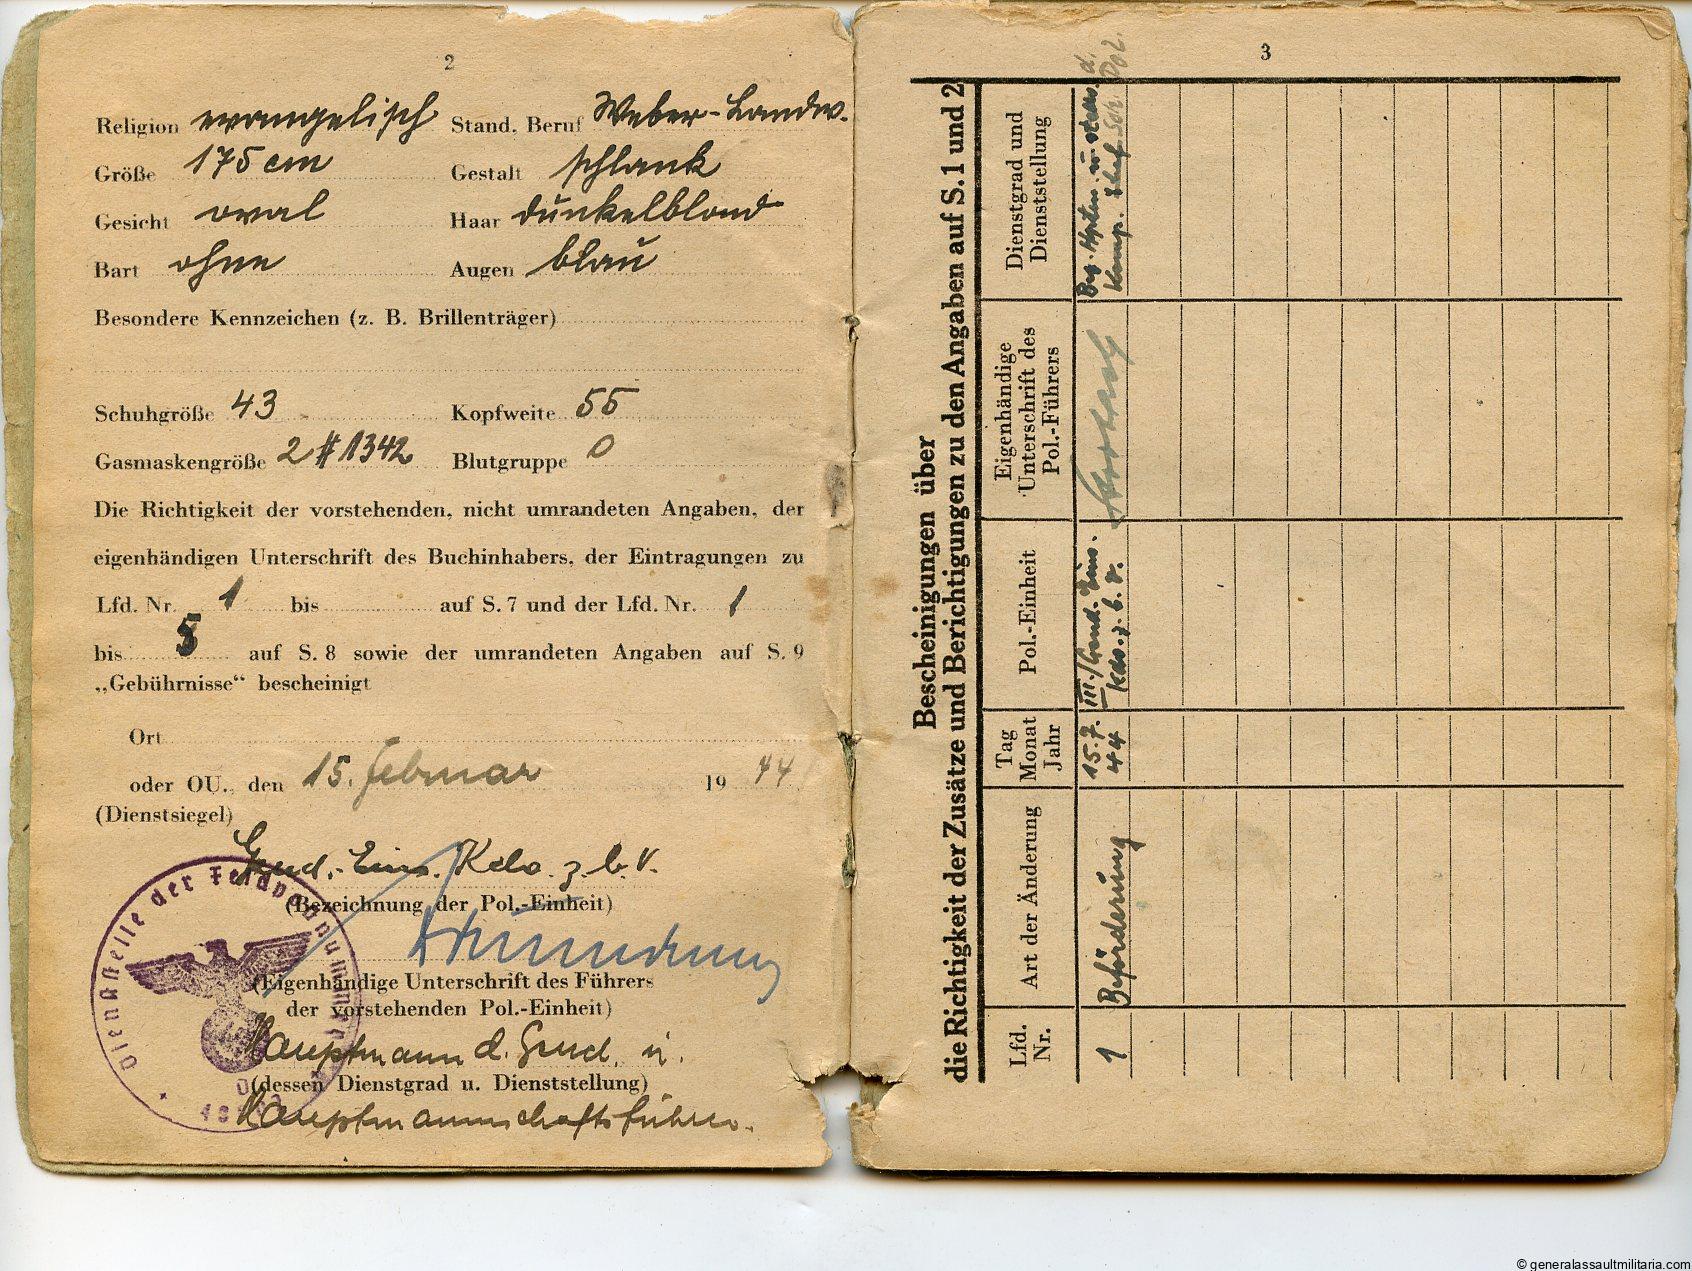 2
Religion evangelisch Stand, Beruf Weber-Landw.
Größe 175 cm Gestalt schlank
Gesicht oval Haar dunkelblond
Bart ohne Augen blau
Besondere Kennzeichen (z. B. Brillenträger)
Schuhgröße 43 Kopfweite 55
Gasmaskengröße 2 # 1342 Blutgruppe 0
Die Richtigkeit der vorstehenden, nicht umrandeten Angaben, der
eigenhändigen Unterschrift des Buchinhabers, der Eintragungen zu
Lfd. Nr. 1 bis auf S. 7 und der Lfd. Nr. 1
bis 5 auf S. 8 sowie der umrandeten Angaben auf S. 9
„Gebührnisse“ bescheinigt
Ort
oder OU., den 15. Februar 1944
(Dienstsiegel)
Gend.-Eins. Kdo. z. b. V.
(Bezeichnung der Pol.-Einheit)
(Eigenhändige Unterschrift des Führers
der vorstehenden Pol.-Einheit)
Hauptmann d. Gend. u.
(dessen Dienstgrad u. Dienststellung)
Hauptmannschaftsführer.
Dienststelle der Feldpostnummer
3
Bescheinigungen über
die Richtigkeit der Zusätze und Berichtigungen zu den Angaben auf S. 1 und 2
Lfd. Nr.
Art der Änderung
Tag Monat Jahr
Pol.-Einheit
Eigenhändige Unterschrift des Pol.-Führers
Dienstgrad und Dienststellung
1
Beförderung
15.7.
44
III./Gend. Eins.
Kdo. z. b. V.
Komp. Chef
d.
Pol.
© generalassaultmilitaria.com